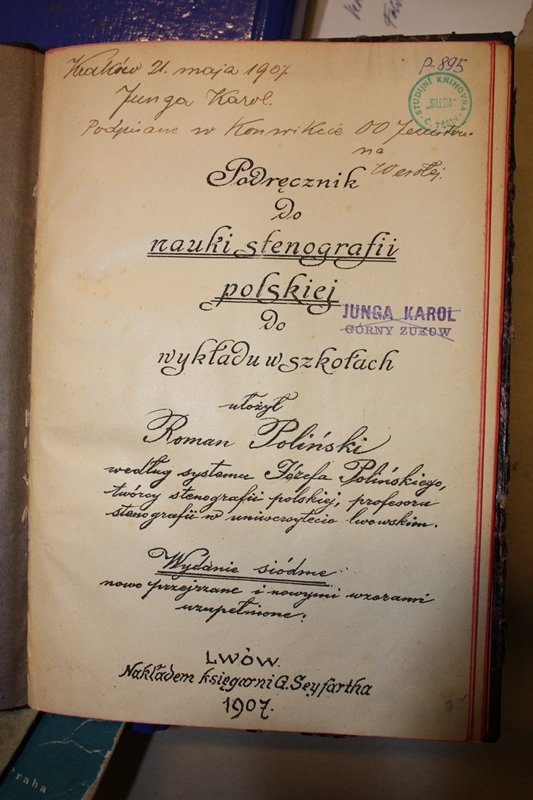 Kraków 21. maja 1907
p-895
Junga Karol.
STUDIJNÍ KNIHOVNA
"SILESIA"
Č. TĚŠÍN
Podpisane w Konwikcie OO Jezuitów
na
Wesołej.
Podręcznik
do
nauki stenografii
polskiej
do
wykładu w szkołach
JUNGA KAROL
GÓRNY ŻUKOW
ułożył
Roman Poliński
według systemu Józefa Polińskiego,
twórcy stenografii polskiej, profesora
stenografii w uniwersytecie lwowskim.
Wydanie siódme
nowo przejrzane i nowymi wzorami
uzupełnione.
LWÓW.
Nakładem księgarni G. Seyfartha
1907.
raha